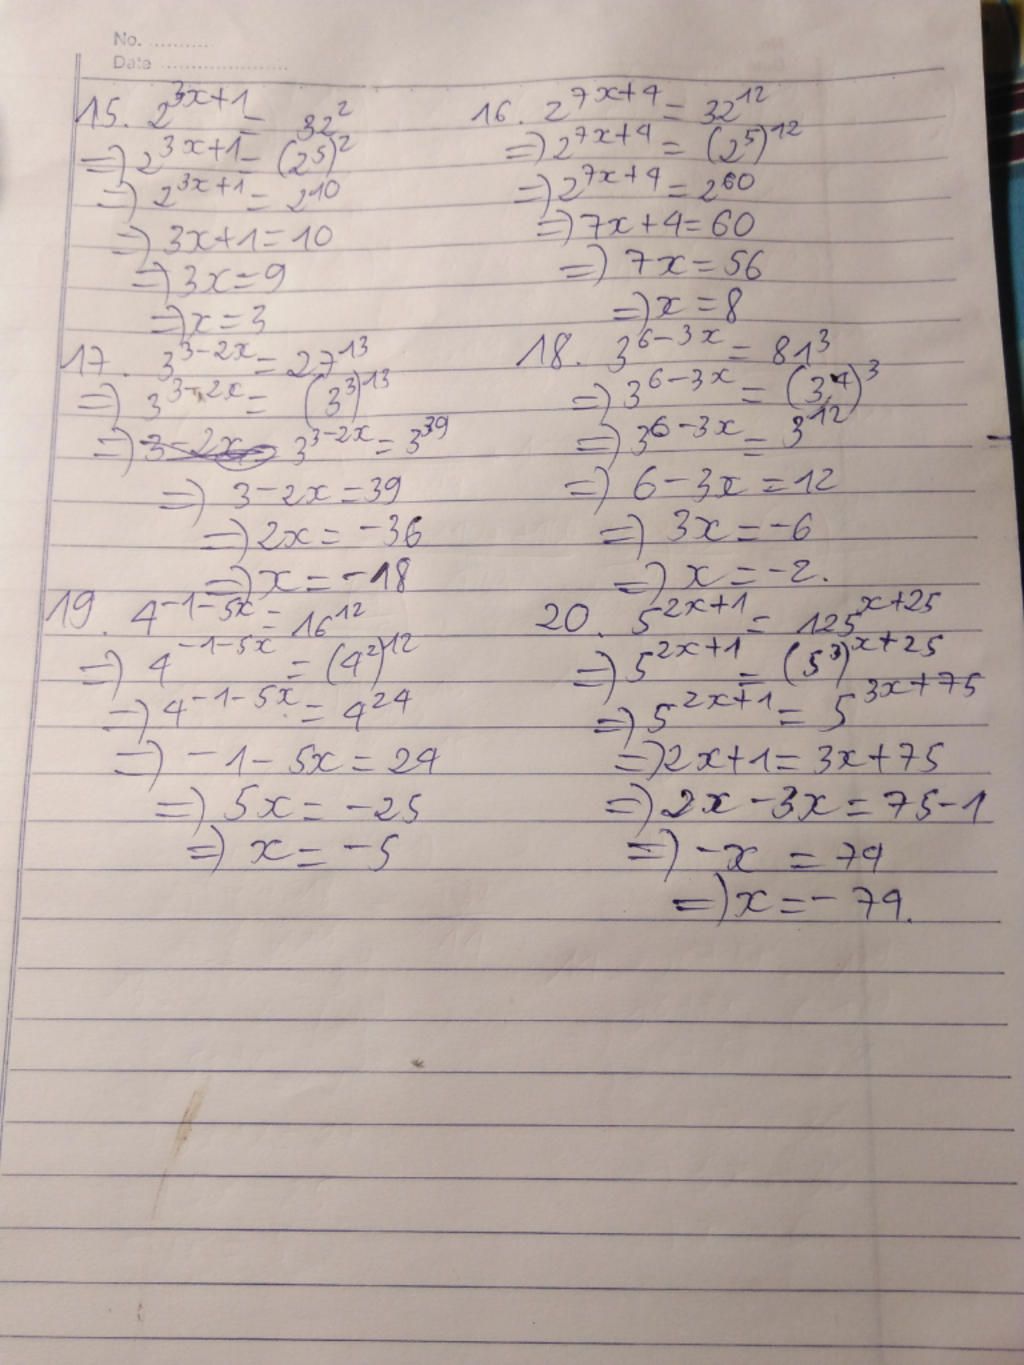 No. ..........
Date ....................
15. 2^{3x+1} = 32^2
=> 2^{3x+1} = (2^5)^2
=> 2^{3x+1} = 2^{10}
=> 3x+1=10
=> 3x=9
=> x=3
16. 2^{7x+4} = 32^{12}
=> 2^{7x+4} = (2^5)^{12}
=> 2^{7x+4} = 2^{60}
=> 7x+4=60
=> 7x=56
=> x=8
17. 3^{3-2x} = 27^{13}
=> 3^{3-2x} = (3^3)^{13}
=> 3^{3-2x} = 3^{39}
=> 3-2x=39
=> 2x=-36
=> x=-18
18. 3^{6-3x} = 81^3
=> 3^{6-3x} = (3^4)^3
=> 3^{6-3x} = 3^{12}
=> 6-3x=12
=> 3x=-6
=> x=-2.
19. 4^{-1-5x} = 16^{12}
=> 4^{-1-5x} = (4^2)^{12}
=> 4^{-1-5x} = 4^{24}
=> -1-5x=24
=> 5x=-25
=> x=-5
20. 5^{2x+1} = 125^{x+25}
=> 5^{2x+1} = (5^3)^{x+25}
=> 5^{2x+1} = 5^{3x+75}
=> 2x+1=3x+75
=> 2x-3x=75-1
=> -x = 74
=> x=-74.